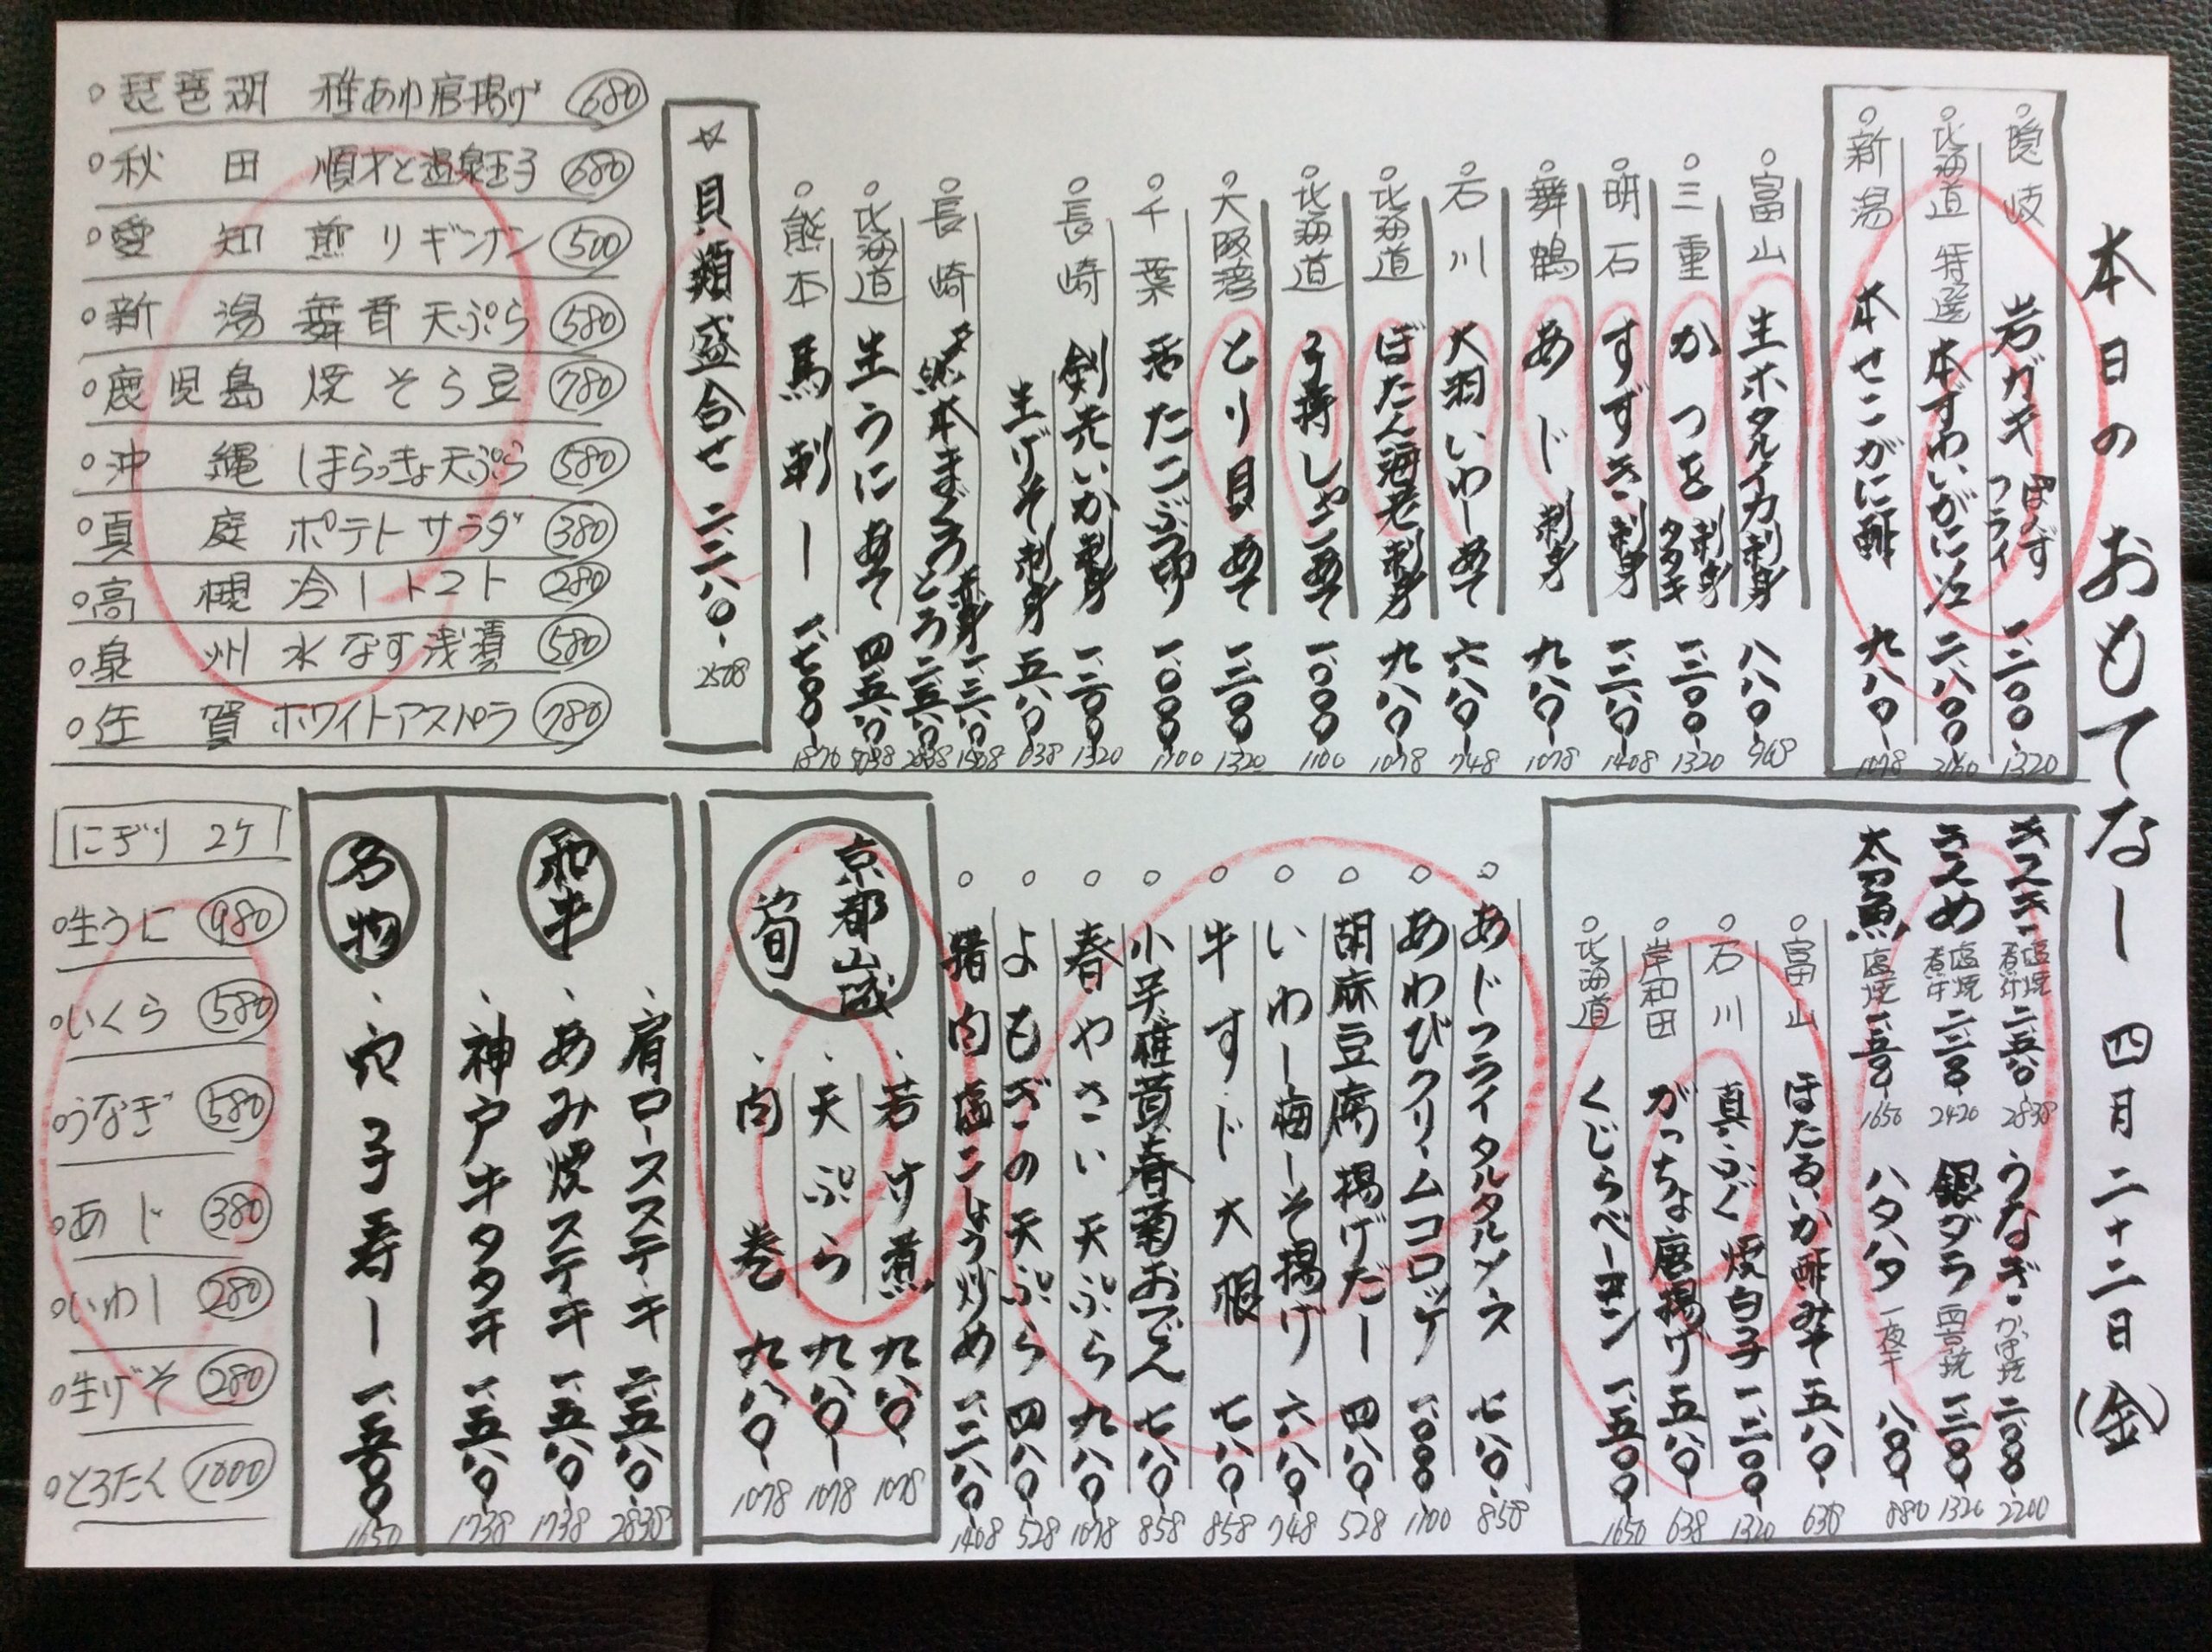 本日のおもてなし 四月二十二日(金)
隠岐 岩ガキ ぽんず フライ 一、二〇〇- 1320
北海道 特選 本ずわいがに 二、八〇〇
新潟 本せこがに酢 九八〇- 1078
富山 生ホタルイカ刺身 八八〇- 968
三重 かつを 刺身 タタキ 一、二〇〇- 1320
明石 すずき 刺身 一、二八〇- 1408
舞鶴 あじ 刺身 九八〇- 1078
石川 大羽いわし あて 六八〇- 748
北海道 ぼたん海老 刺身 九八〇- 1078
北海道 子持しゃこ あて 一、〇〇〇 1100
大阪湾 とり貝 あて 一、二〇〇 1320
千葉 活たこぶつ切 一、〇〇〇 1100
長崎 剣先いか 刺身 一、二〇〇 1320
生げそ 刺身 五八〇- 638
長崎 本まぐろ 赤身 一、三八〇 とろ 二、五八〇
北海道 生うに あて 四、五八〇
熊本 馬刺し 一、七〇〇- 1870
☆貝類盛合せ 二、二八〇- 2508
琵琶湖 稚あゆ唐揚げ 680
秋田 順才と温泉玉子 680
愛知 煎りギンナン 500
新潟 舞茸天ぷら 580
鹿児島 焼そら豆 780
沖縄 しまらっきょ天ぷら 580
真庭 ポテトサラダ 380
高槻 冷しトマト 280
泉州 水なす浅漬 580
佐賀 ホワイトアスパラ 780
キンキ 塩焼 煮汁 二、五八〇 2838
塩焼 煮汁 二、二〇〇 2420
太刀魚 塩焼 一、五〇〇 1650
うなぎ かば焼 二、〇〇〇- 2200
銀ダラ 西京焼 一、二〇〇 1320
ハタハタ 一夜干 八〇〇 880
富山 ほたるいか酢みそ 五八〇- 638
石川 真ふぐ 焼白子 一、二〇〇 1320
岸和田 がっちょ唐揚げ 五八〇- 638
北海道 くじらベーコン 一、五〇〇- 1650
あじフライタルタルソース 七八〇- 858
あわびクリームコロッケ 一、〇〇〇- 1100
胡麻豆腐揚げだし 四八〇- 528
いわし梅しそ揚げ 六八〇- 748
牛すじ大根 七八〇- 858
小芋椎茸春菊おでん 七八〇- 858
春やさい天ぷら 九八〇- 1078
よもぎの天ぷら 四八〇- 528
猪肉塩こしょう炒め 一、二八〇- 1408
京都山城 筍
若け煮 九八〇- 1078
天ぷら 九八〇- 1078
肉巻 九八〇- 1078
和牛
肩ロースステーキ 二、五八〇- 2838
あみ焼ステーキ 一、五八〇- 1738
神戸牛タタキ 一、五八〇- 1738
名物
穴子寿し 一、五〇〇- 1650
にぎり 2ケ
生うに 980
いくら 580
うなぎ 580
あじ 380
いわし 280
生げそ 280
とろたく 1000